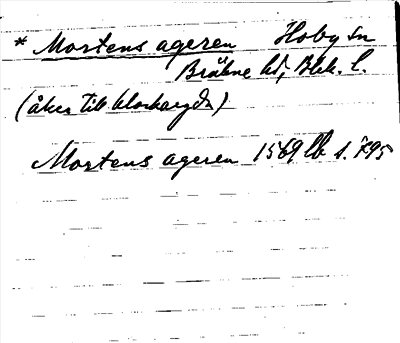 * Mortens ageren Hoby sn
Bräkne hd, Blek. l.
(åker till klockargdn)
Mortens ageren 1569 lb s. 795